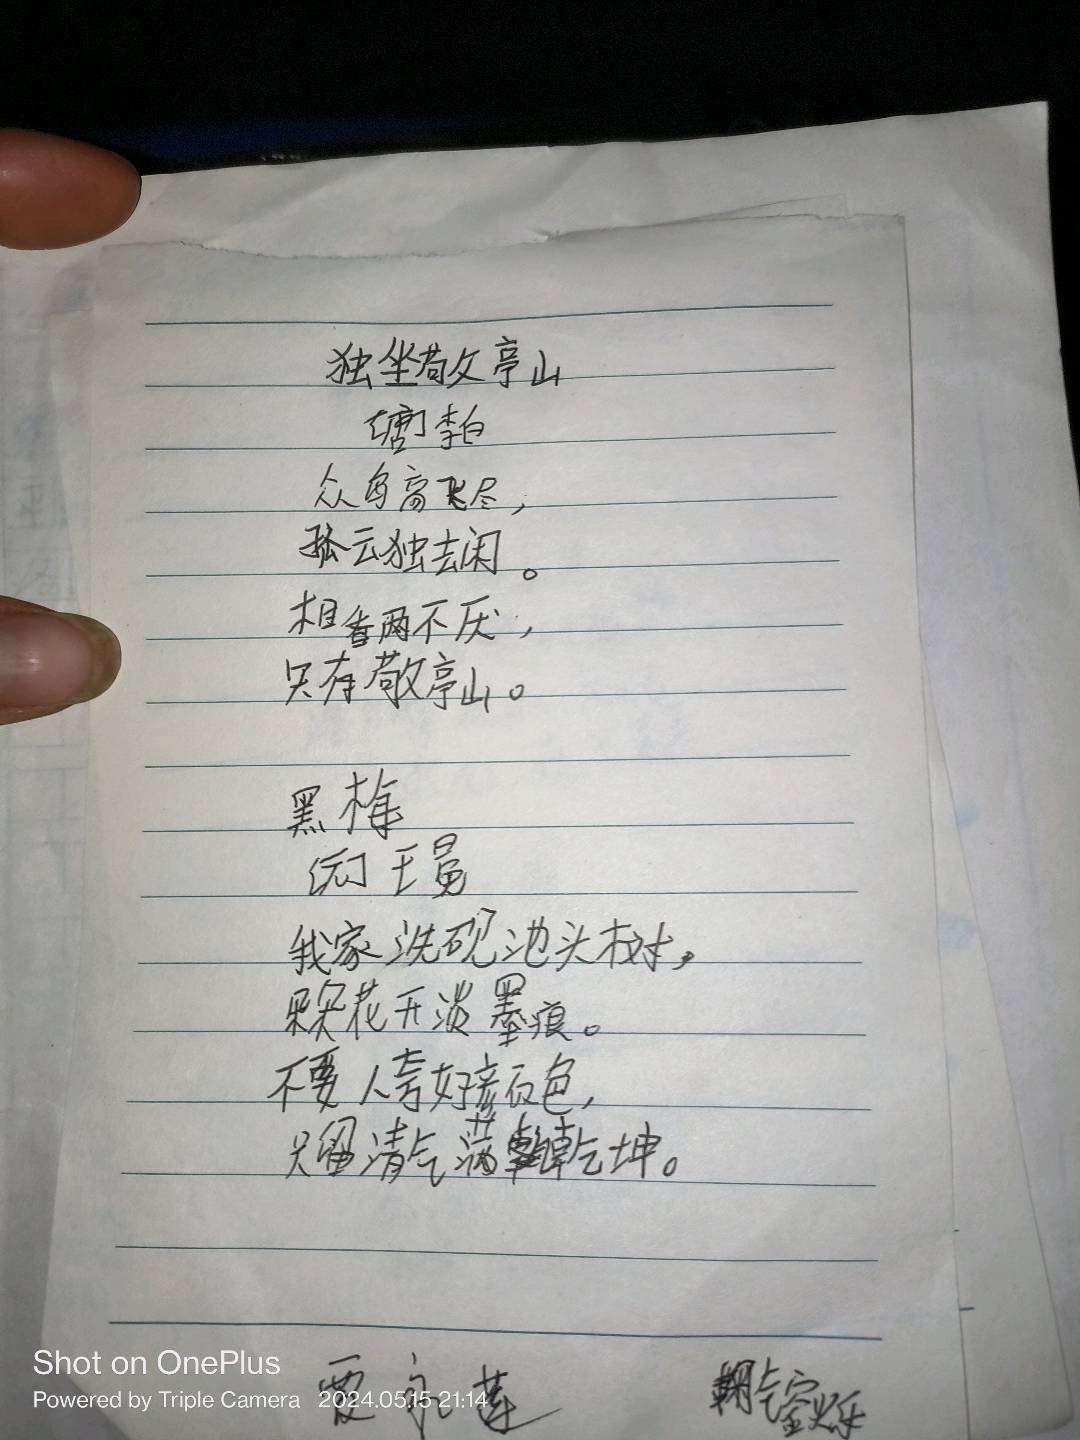 独坐敬亭山
[唐]李白
众鸟高飞尽，
孤云独去闲。
相看两不厌，
只有敬亭山。
黑梅
[元]王冕
我家洗砚池头树，
朵朵花开淡墨痕。
不要人夸好颜色，
只留清气满乾坤。
Shot on OnePlus
Powered by Triple Camera 2024.05.15 21:14